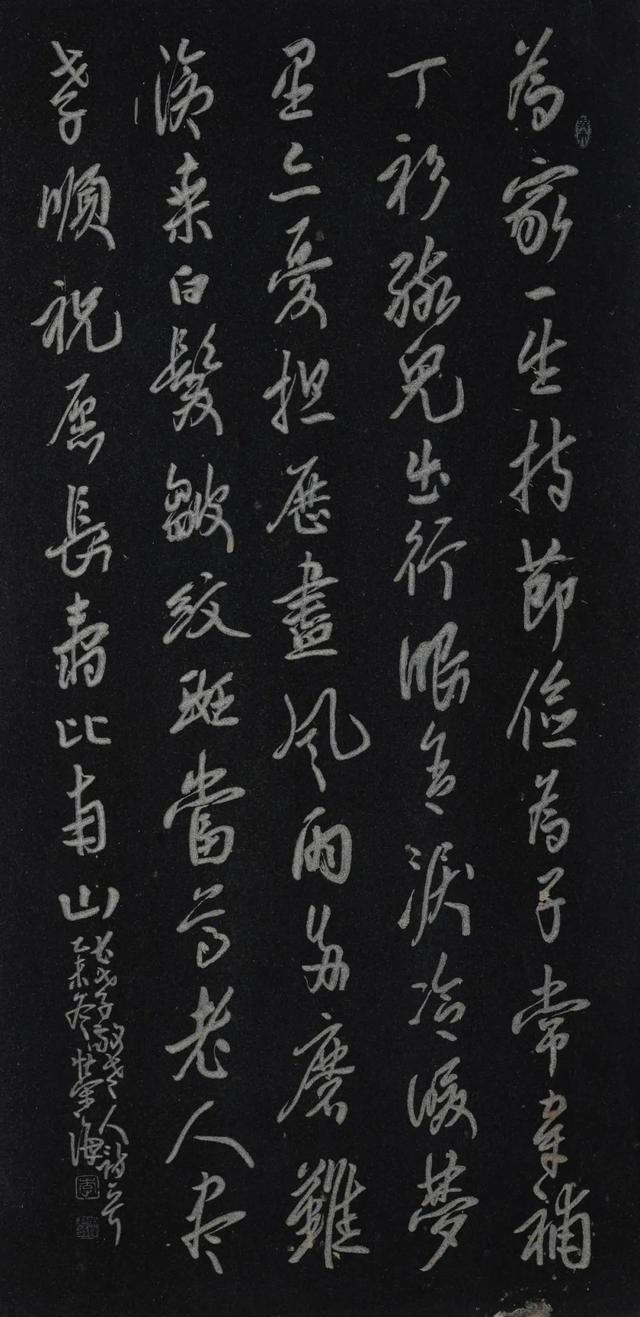 為家一生持節儉為子常年補
丁衫孩兒出行眼含淚冷暖夢
里亦憂担歷盡風雨多磨難
換来白髮皺紋斑當為老人尽
孝順祝愿長壽比南山
人詩一首
乙未冬 海